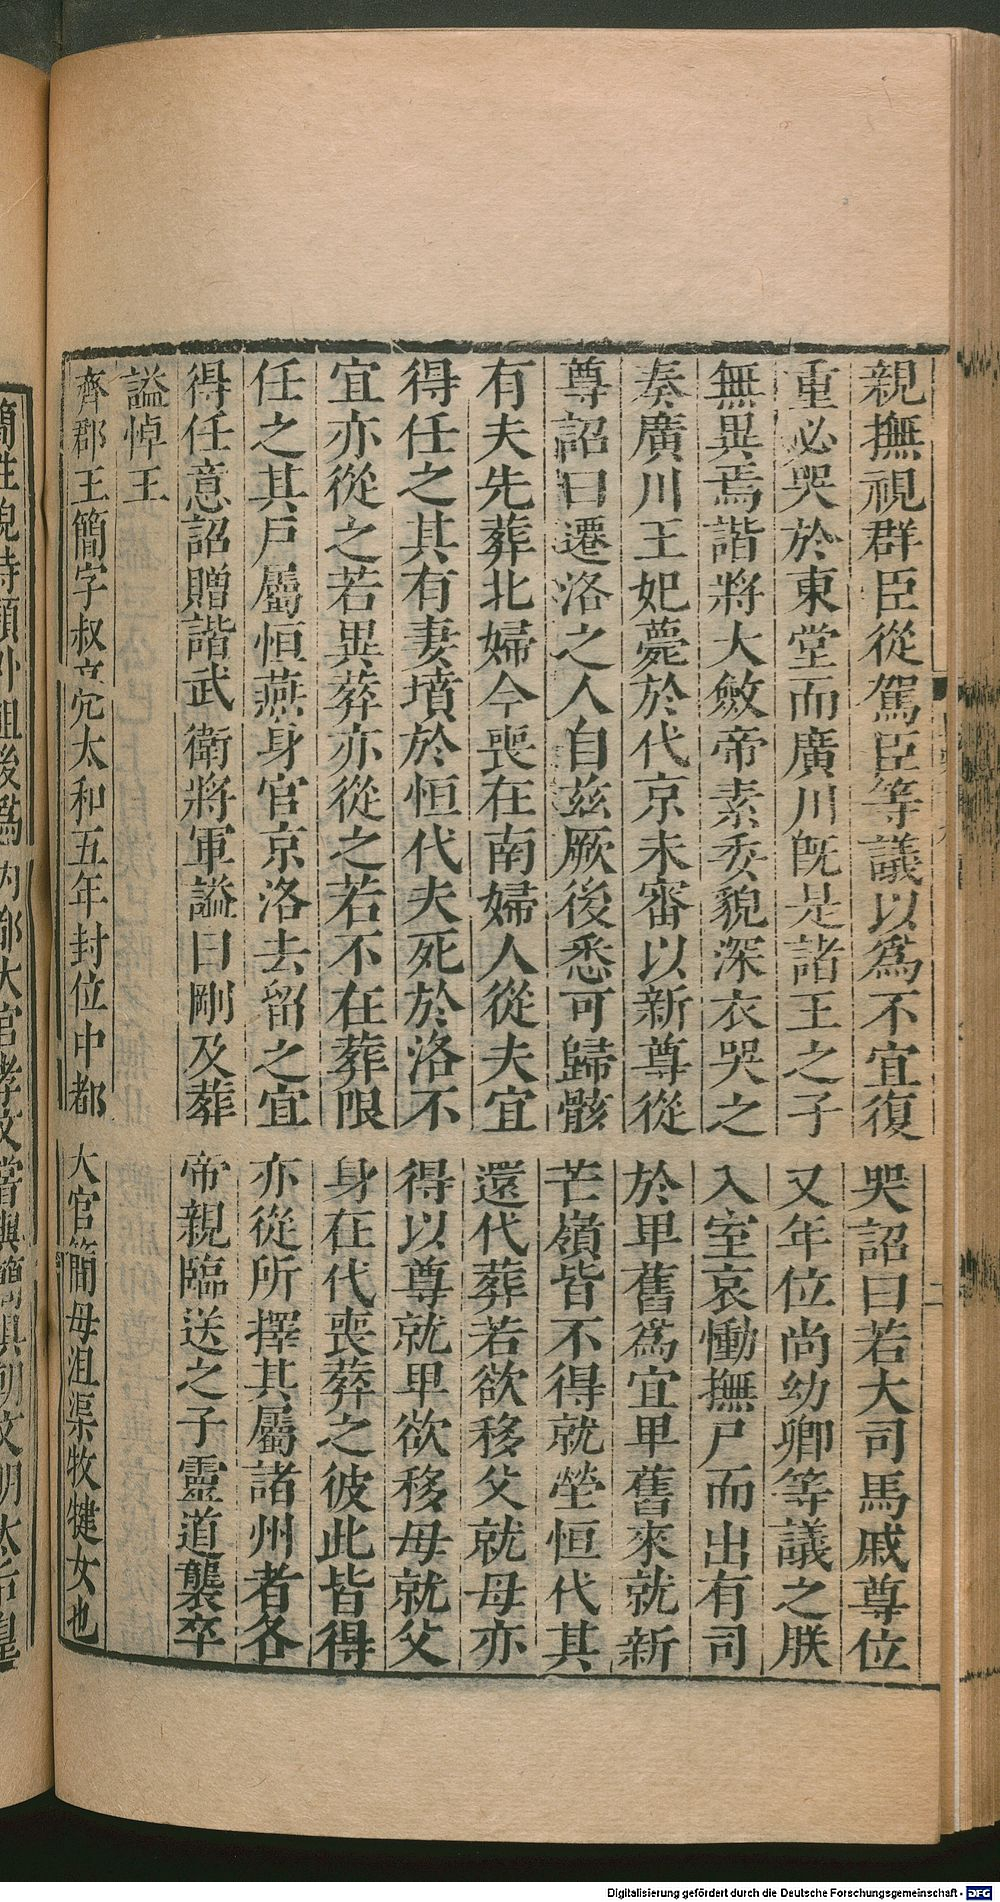 親撫視群臣從駕臣等議以爲不宜復哭詔曰若大司馬戚尊位
重必哭於東堂而廣川既是諸王之子又年位尚幼卿等議之朕
無異焉諧將大斂帝素委貌深衣哭之入室哀慟撫尸而出有司
奏廣川王妃薨於代京未審以新尊從於卑舊爲宜卑舊來就新
尊詔曰遷洛之人自茲厥後悉可歸骸芒嶺皆不得就塋恒代其
有夫先葬北婦今喪在南婦人從夫宜還代葬若欲移父就母亦
得任之其有妻墳於恒代夫死於洛不得以尊就卑欲移母就父
宜亦從之若異葬亦從之若不在葬限身在代喪葬之彼此皆得
任之其戶屬恒燕身官京洛去留之宜亦從所擇其屬諸州者各
得任意詔贈諧武衛將軍謚曰剛及葬帝親臨送之子靈道襲卒
謚悼王
齊郡王簡字叔亮太和五年封位中都大官簡母沮渠牧犍女也
簡性貌特類外祖後爲內都大官孝文嘗與簡俱朝文明太后皇
Digitalisierung gefördert durch die Deutsche Forschungsgemeinschaft - DFG